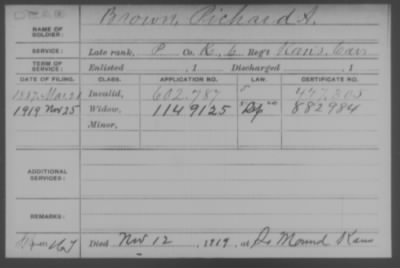 DEAD
NAME OF SOLDIER: Brown, Richard A.
SERVICE: Late rank, P Co. K, 6 Reg't Kans. Cav
TERM OF SERVICE: Enlisted , 1 Discharged , 1
DATE OF FILING. CLASS. APPLICATION NO. LAW. CERTIFICATE NO.
1887 Mar. 28 Invalid, 602.787
1919 Nov 25 Widow, 1149125 882984
Minor,
ADDITIONAL SERVICES:
REMARKS:
Died Nov 12, 1919, at Mound Kans